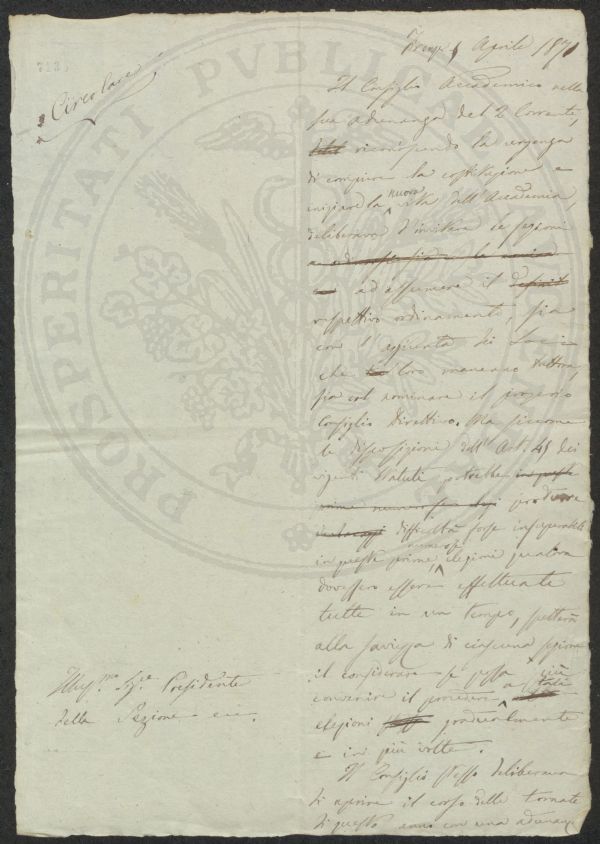 Circolare
Aprile 1871
Il Consiglio Accademico nella
sua adunanza del 2 Corrente,
riconoscendo la urgenza
di compiere la costituzione e
iniziare la nuova vita dell'Accademia,
deliberava d'invitare le sezioni
ad assumere il
rispettivo ordinamento, sia
con l'aggiunta di Soci
che loro mancano tuttora,
sia col nominare il proprio
Consiglio Direttivo. Ma siccome
le disposizioni dell'Art. 45 dei
vigenti Statuti potrebbe
produrre
difficoltà forse insuperabili
in queste prime numerose elezioni qualora
dovessero essere effettuate
tutte in un tempo, spetterà
alla saviezza di ciascuna sezione
il considerare se possa più
convenire il procedere a tali
elezioni gradualmente
e in più volte.
Il Consiglio stesso deliberava
di aprire il corso delle tornate
di questo anno con una adunanza
Illus.mo Sig.re Presidente
della Sezione
PROSPERITATI PUBLICAE